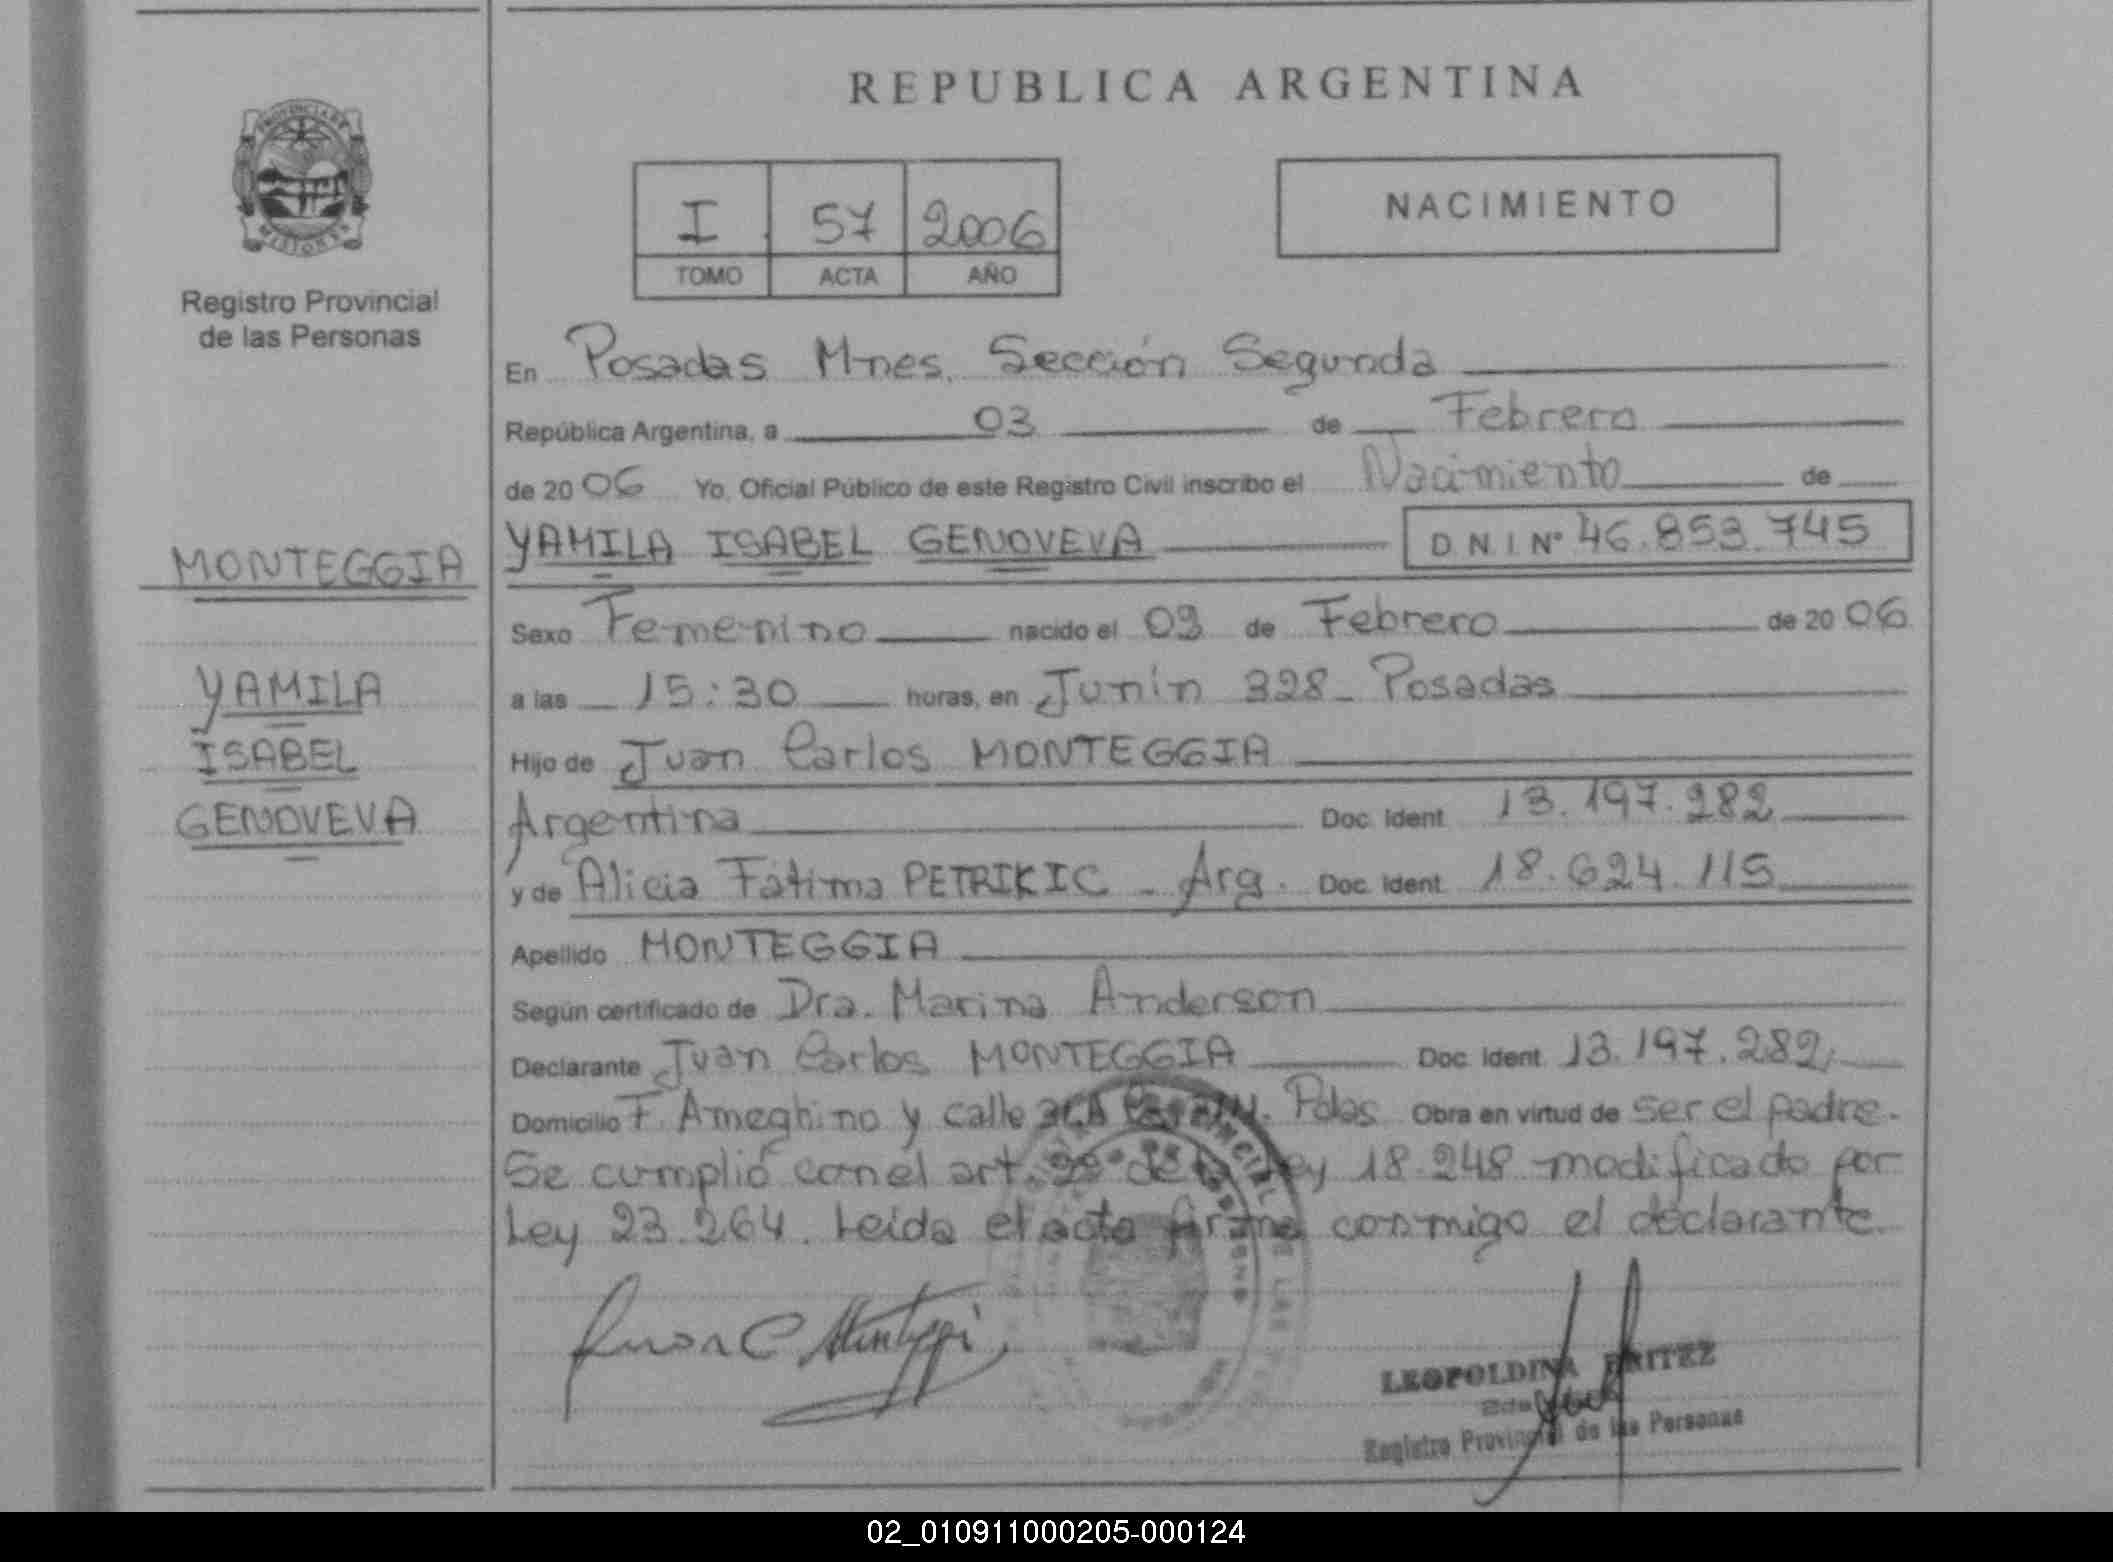 REPUBLICA ARGENTINA
PROVINCIA DE
MISIONES
Registro Provincial
de las Personas
I 57 2006
TOMO ACTA AÑO
NACIMIENTO
En Posadas Mnes. Sección Segunda
República Argentina, a 03 de Febrero
de 20 06 Yo, Oficial Público de este Registro Civil inscribo el Nacimiento de
YAMILA ISABEL GENOVEVA D N I Nº 46.853.745
MONTEGGIA
YAMILA
ISABEL
GENOVEVA
Sexo Femenino nacido el 03 de Febrero de 20 06
a las 15:30 horas, en Junín 328 - Posadas
Hijo de Juan Carlos MONTEGGIA
Argentina Doc. Ident. 13.197.282
y de Alicia Fátima PETRIKIC - Arg. Doc. Ident. 18.624.115
Apellido MONTEGGIA
Según certificado de Dra. Marina Anderson
Declarante Juan Carlos MONTEGGIA Doc. Ident. 13.197.282
Domicilio F. Ameghino y calle Pdas Obra en virtud de ser el padre.
Se cumplió con el art. de la Ley 18.248 modificado por
Ley 23.264. Leída el acta firma conmigo el declarante.
Juan C Monteggia
LEOPOLDINA BRITEZ
Registro Provincial de las Personas
02_010911000205-000124